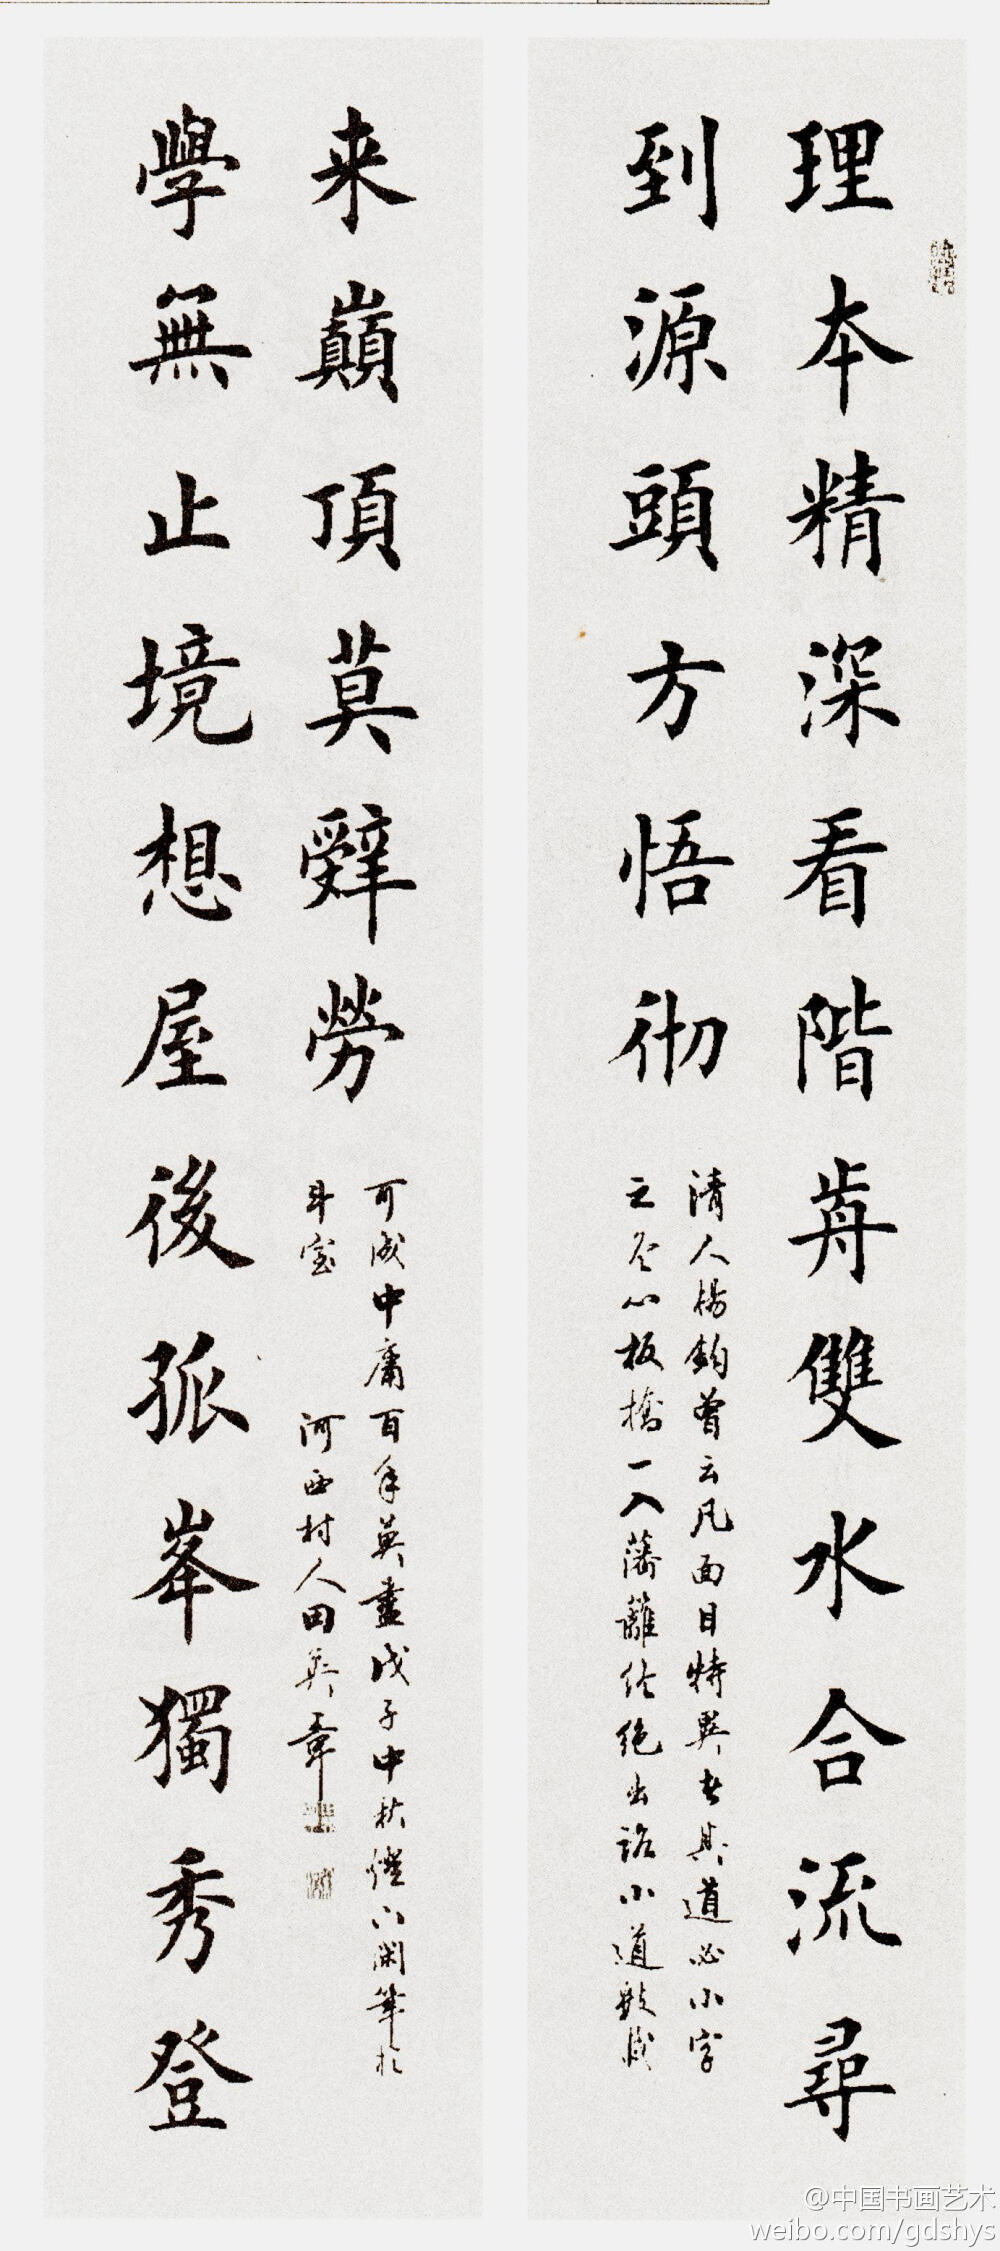 理本精深看階歬雙水合流尋
到源頭方悟彻
清人楊鈞曾云凡面目特異者其道必小字
之 心板橋一入藩籬 绝出路小道 成
来巔頂莫辤勞
學無止境想屋後孤峯獨秀登
可成中庸百年英畫戊子中秋 閑筆於
斗室 河西村人田英章
@中国书画艺术
weibo.com/gdshys